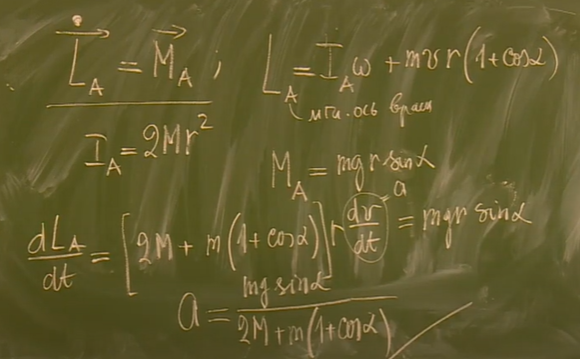 L̇⃗_A = M⃗_A ; L_A = I_A ω + mυr(1+cosα)
мгн. ось вращ
I_A = 2Mr²
M_A = mgr sinα
a
dL_A/dt = [2M + m(1+cosα)] r dυ/dt = mgr sinα
a = mg sinα / 2M + m(1+cosα)